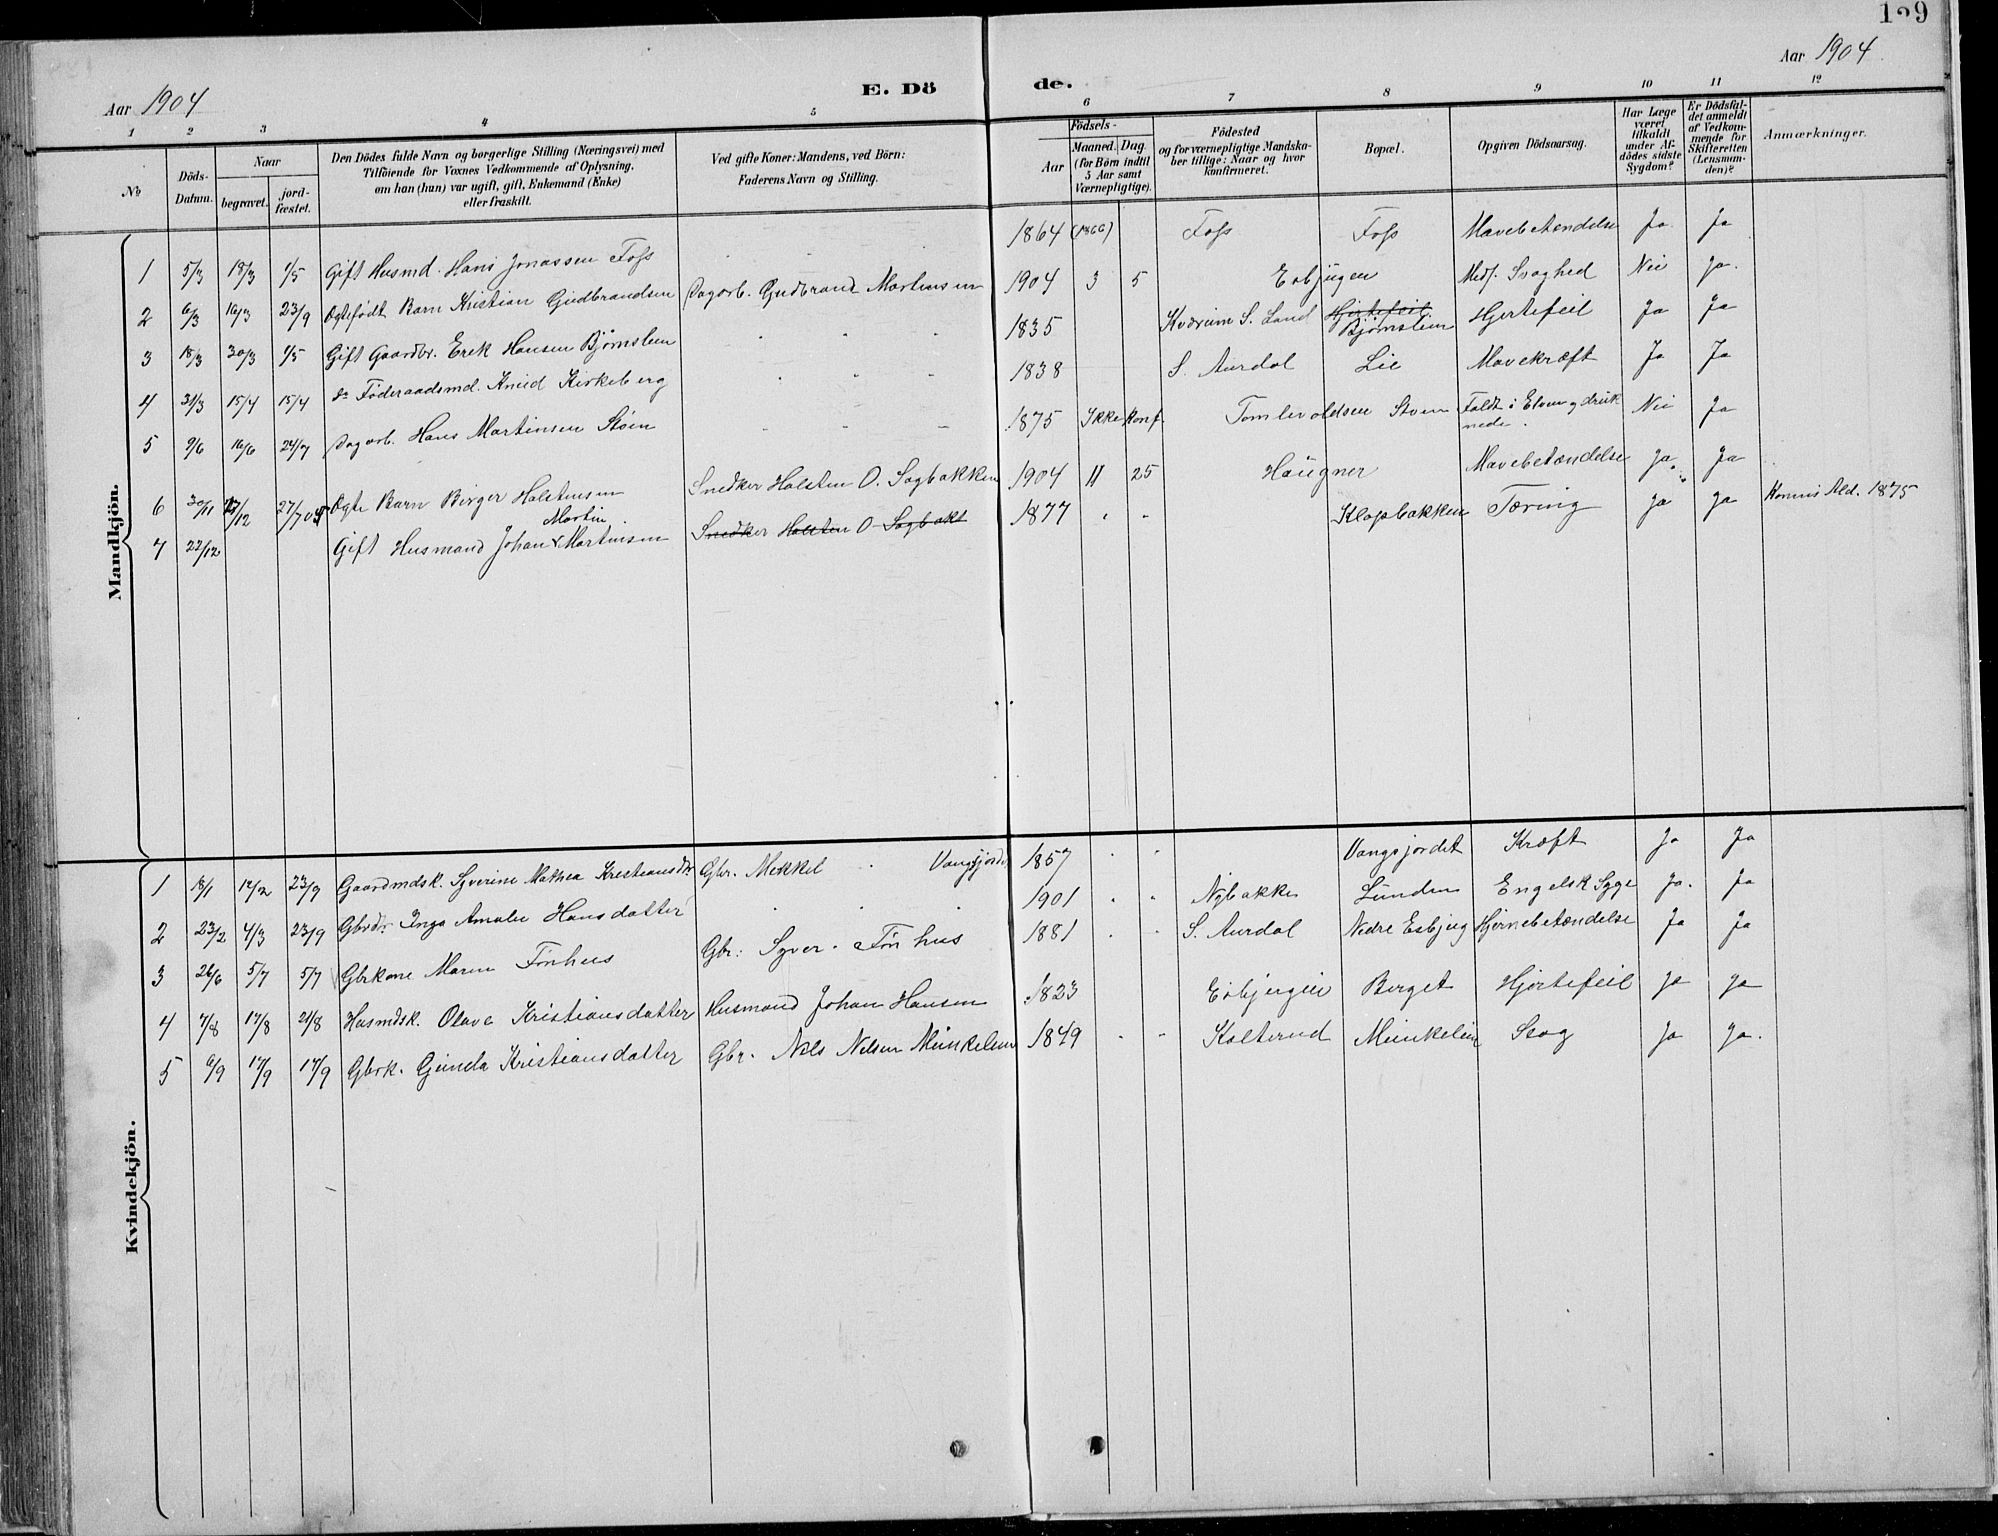 Aar 1904
E. Dö
de.
Aar 1904
129
1 2 3 4 5 6 7 8 9 10 11 12
No
Döds-Datum.
Naar
begravet.
jordfæstet.
Den Dödes fulde Navn og borgerlige Stilling (Næringsvei) med Tilföiende for Voxnes Vedkommende af Oplysning, om han (hun) var ugift, gift, Enkemand (Enke) eller fraskilt.
Ved gifte Koner: Mandens, ved Börn: Faderens Navn og Stilling.
Födsels-
Aar
Maaned. Dag.
(for Börn indtil 5 Aar samt Værnepligtige).
Födested og for værnepligtige Mandskaber tillige: Naar og hvor konfirmeret.
Bopæl.
Opgiven Dödsaarsag.
Har Læge været tilkaldt under Afdödes sidste Sygdom?
Er Dödsfaldet anmeldt af Vedkommende for Skifteretten (Lensmanden)?
Anmærkninger.
Mandkjön.
1 5/3 18/3 1/5 Gift Husmd. Hans Jonassen Foss 1864 (1866) Foss Foss Mavebetændelse Ja Ja
2 6/3 16/3 23/9 Ægtefödt Barn Kristian Gudbrandsen Dagarb. Gudbrand Martinsen 1904 3 5 Esbjugen Medf. Svaghed Nei ja.
3 18/3 30/3 1/5 Gift Gaardbr. Erek Hansen Björnslien 1835 Kværum S. Land Hjertefeil Björnslien Hjertefeil Ja Ja
4 31/3 15/4 15/4 do Föderaadsmd. Knud Kirkeberg 1838 S. Aurdal Lie Mavekræft Ja Ja
5 9/6 16/6 24/7 Dagarb. Hans Martinsen Stöen 1875 Ikke konf. Tomlevoldsen Stoen Faldt i Elven og druknede. Nei Ja
6 30/11 27/12 27/7 05 Ægte Barn Birger Halstensen Snedker Halsten O. Sagbakken 1904 11 25 Haugner Mavebetændelse Ja Ja
7 22/12 Gift Husmand Johan Martin Martinsen Snedker Halsten O. Sagbakk 1877 Klopbakken Tæring Ja Ja Komm. Ald. 1875
Kvindekjön.
1 18/1 12/2 23/9 Gaardmdsk. Syverine Mathea Kristiansdtr Gbr. Mekkel Vangsjordet 1857 Vangsjordet Kræft Ja Ja
2 23/2 4/3 23/9 Gbrdr. Inga Amalie Hansdatter 1901 Nybakke Lunden Engelsk Syge Ja. Ja
3 26/6 5/7 5/7 Gbrkone Maren Fönhus Gbr: Syver Fönhus 1881 S. Aurdal Nedre Esbjug Hjernebetændelse Ja Ja
4 7/8 17/8 21/8 Husmdsk. Olave Kristiansdatter Husmand Johan Hansen 1823 Esbjugen Berget Hjertefeil Ja Ja
5 6/9 17/9 17/9 Gbrk. Gunda Kristiansdatter Gbr. Nils Nilsen Munkelien 1849 Kolterud Munkelien Slag Ja Ja.